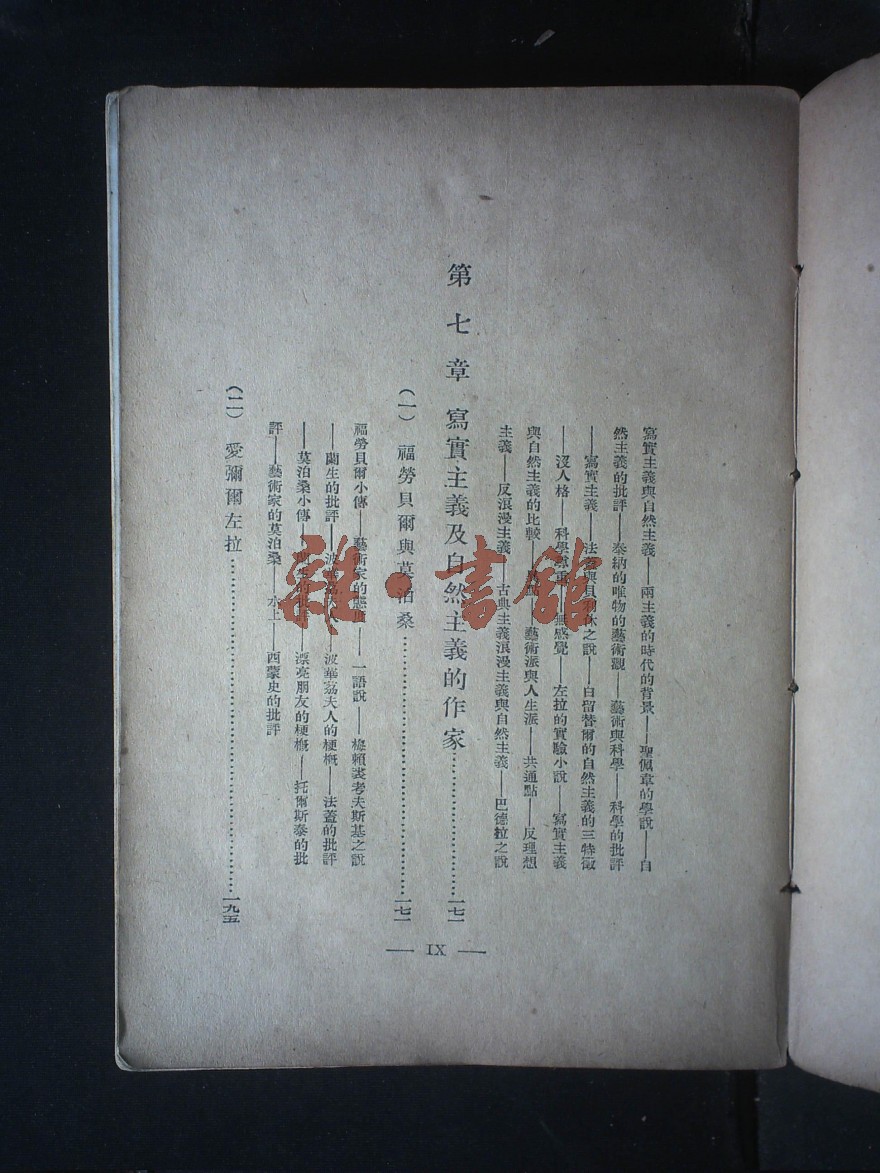 寫實主義與自然主義——兩主義的時代的背景——聖佩韋的學說——自
然主義的批評——泰納的唯物的藝術觀——藝術與科學——科學的批評
——寫實主義——法蓋與貝利休之說——白留替爾的自然主義的三特徵
——沒人格——科學尊重——無感覺——左拉的實驗小說——寫實主義
與自然主義的比較——藝術派與人生派——共通點——反理想
主義——反浪漫主義——古典主義浪漫主義與自然主義——巴德拉之說
第七章 寫實主義及自然主義的作家……一七一
(一) 福勞貝爾與莫泊桑……一七一
福勞貝爾小傳——藝術家的態度——一語說——梅賴裘考夫斯基之說
——蘭生的批評——波華荔夫人——波華荔夫人的梗概——法蓋的批評
——莫泊桑小傳——的批評——漂亮朋友的梗概——托爾斯泰的批
評——藝術家的莫泊桑——水上——西蒙史的批評
(二) 愛彌爾左拉……一九五
— IX —
雜·書館